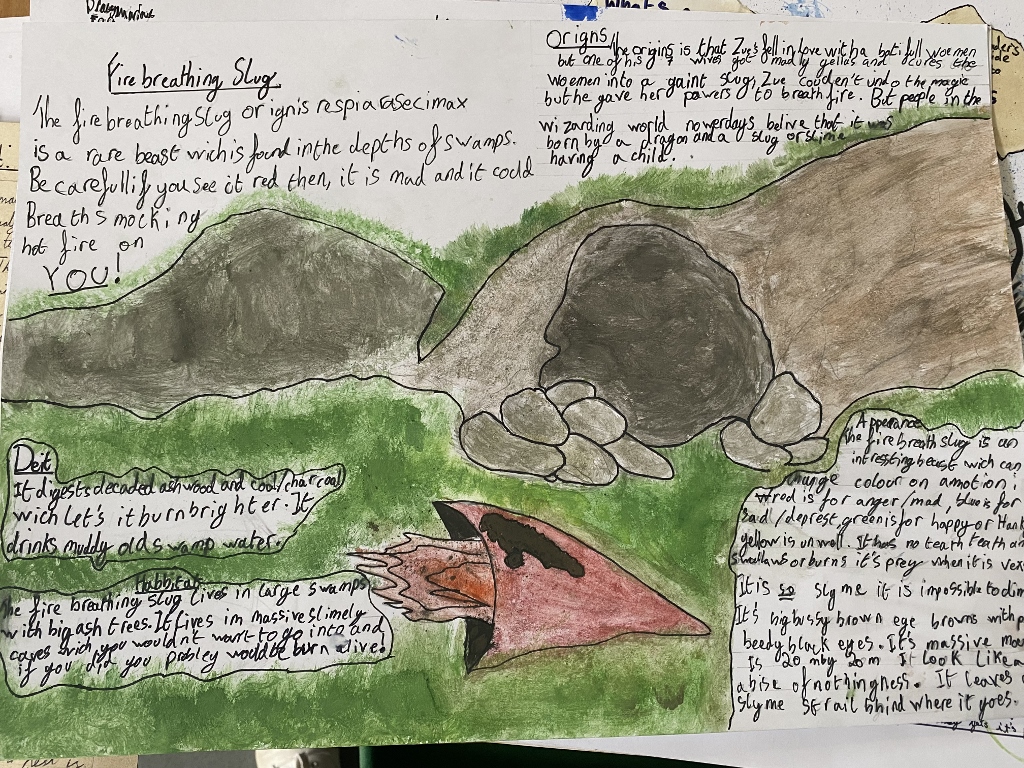 Fire breathing Slug
The fire breathing Slug or ignis respiarasecimax
is a rare beast wich is found in the depths of swamps.
Be carefull if you see it red then, it is mad and it codd
Breath smocking
hot fire on
YOU!
Origns
The origins is that Zue's fell in love with a batifull woemen
but one of his 7 wives got madly gellas and cures the
woemen into a gaint slug, Zue coulden't undo the magic
but he gave her powers to breath fire. But peeple in the
wizarding world nowerdays belive that it was
born by a dragon and a slug or slime
having a child.
Deit
It digests decaded ash wood and coal/charcoal
wich let's it burn brighter. It
drinks muddy old swamp water.
Habbitat
The fire breathing slug lives in large swamps
with big ash trees. It lives im massive slimely
caves wich you wouldn't want to go into and
if you did you probley would be burn alive!
Apperance
the fire breath slug is an
intresting beast wich can
change colour on amotion:
red is for anger/mad, blue is for
sad/deprest, green is for happy or
yellow is unwell. It has no teath
swallows or burns it's prey when it is
It is so slyme it is impossible to
It's big bussy brown eye brows with
beedy black eyes. It's massive
Is 20m by 20m It look like a
abise of nothingness. It leaves
slyme strail bhind where it goes.